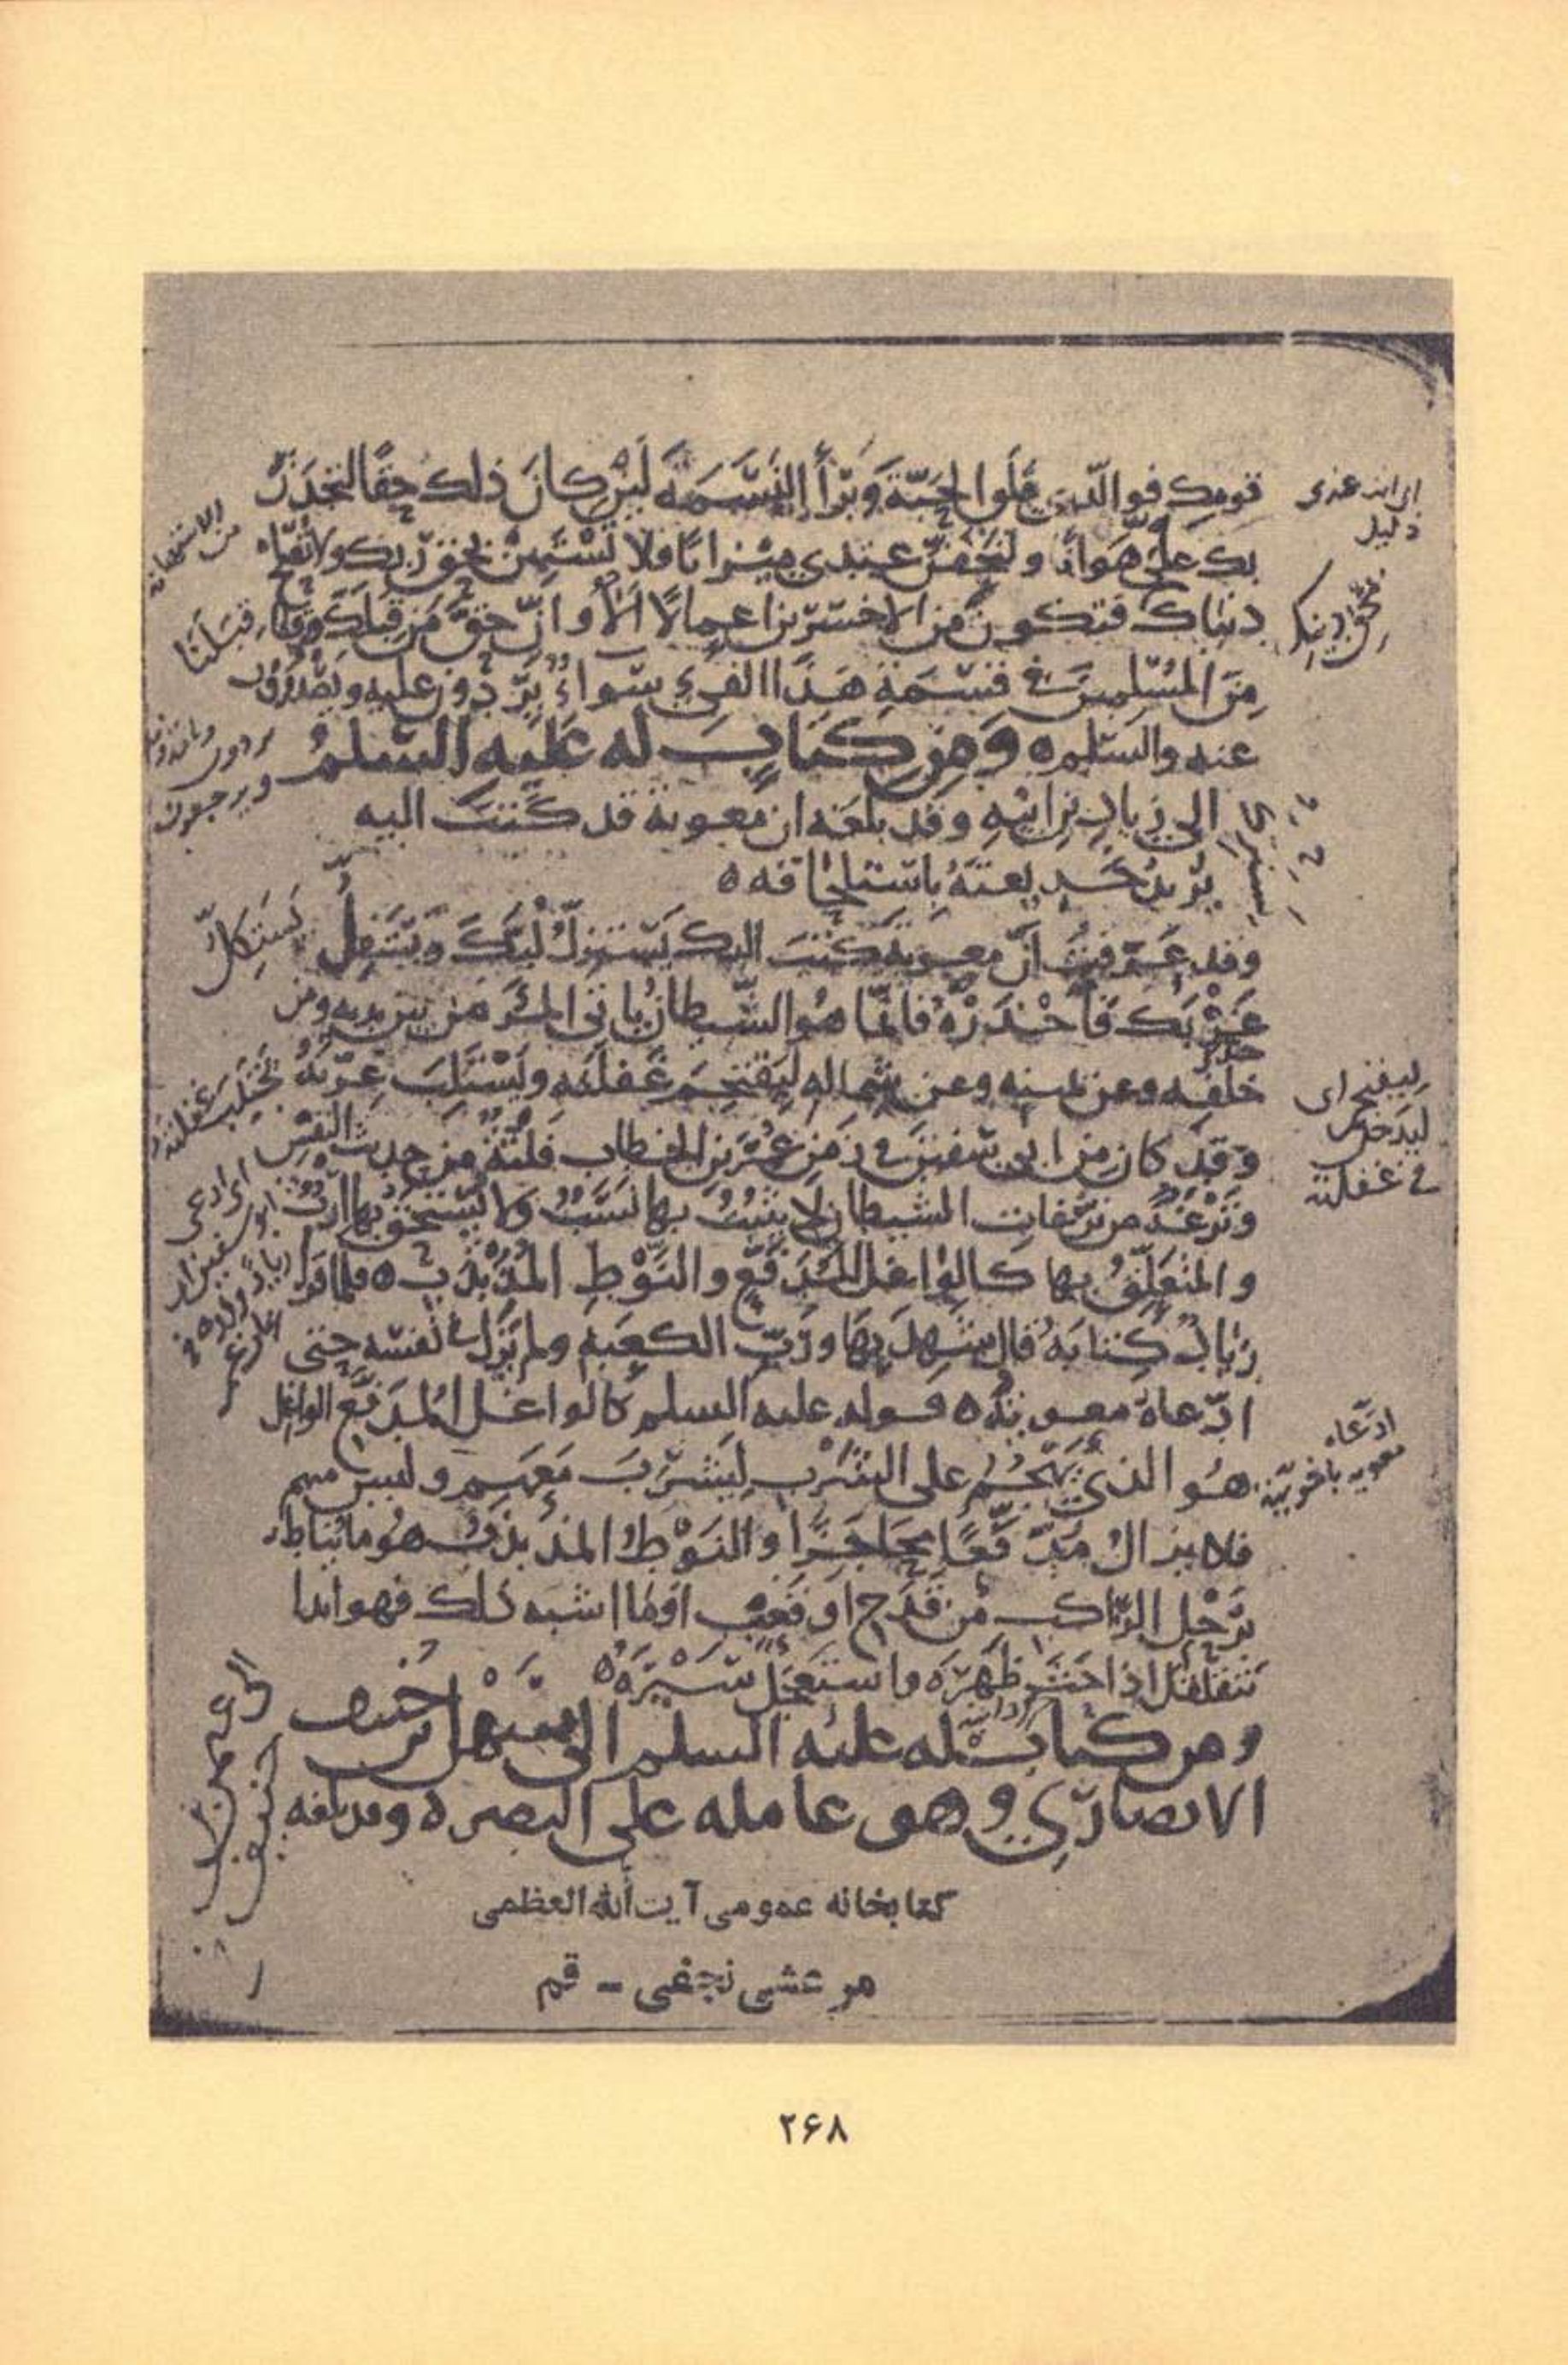 قومك فوالّذي فلق الحبّة وبرأ النَّسَمَةَ لَئِن كانَ ذلك حقًّا لتجدَنّ
بك علىَّ هَوانًا ولتَخِفَّنَّ عندي ميزانًا فلا تَسْتَهِنْ بحقّ ربّك ولا تُصلح
دنياك فتكون من الاخسرين اعمالًا ألا وانّ حقَّ مَن قِبَلَك وقِبَلَنا
مِنَ المُسْلِمِينَ في قسمة هَذا الفَيءِ سَواءٌ يَرِدُون عليه ويَصْدُرُون
عنه والسّلم ه ومن كتابٍ له عَلَيه السّلمُ
الى زيادِ بن ابيهِ وقد بلغه ان معوية قد كتبَ اليه
يُريدُ خَديعتَهُ باستلحاقه ه
وقد عَرَفتُ أنّ معوية كتبَ اليك يَسْتَزِلُّ لُبَّكَ ويَسْتَفِلُّ
غَرْبَك فاحْذَرْهُ فانّما هُو الشّيطانُ ياتي المَرْءَ من بين يديه ومن
خلفه وعن يمينه وعن شماله لِيَقْتَحِمَ غَفلَتَه ويَسْتَلِبَ غِرّتَهُ
وقد كان من ابي سفينَ في زَمَنِ عُمَرَ بن الخطاب فَلْتَةٌ من حديث النفس
ونَزْغَةٌ من نزغات الشيطان لا يثبُتُ بها نَسَبٌ ولا يُستَحَقُّ بها ارثٌ
والمُتَعلِّقُ بها كالواغل المُدَفَّعِ والنَّوْطِ المُذَبْذَبِ ه فلما قرا
زيادٌ كتابَهُ قال شَهِدَ بِهَا ورَبّ الكعبة ولم يَزَل في نفسه حتى
ادّعاهُ معويةُ ه قوله عليه السلم كالواغل المُدَفَّع الواغل
هُو الذي يَهْجُمُ على الشَّرْب لِيَشْرَبَ مَعَهم وليس منهم
فلا يزالُ مُدَفَّعًا مُحَاجَزًا والنَّوْطُ المُذَبذَبُ هو ما يُناط
بِرَحْلِ الرّاكب من قَدَحٍ او قَعْبٍ او ما اشبه ذلك فهو ابدا
يَتقَلقَلُ اذا حَثَّ ظَهرَه واستعجَلَ سَيْرَهُ ه
ومن كتاب له عليه السلم الى سَهْل بن حُنيف
الانصاريّ وهو عامله على البصره وقد بلغه
قِبَلَنا
ويرجعون
يَستَكِلّ
ليقتحم اى
ليدخل
في غفلته
ادّعاه
كتابخانه عمومى آيت الله العظمى
مرعشى نجفى - قم
۲۶۸